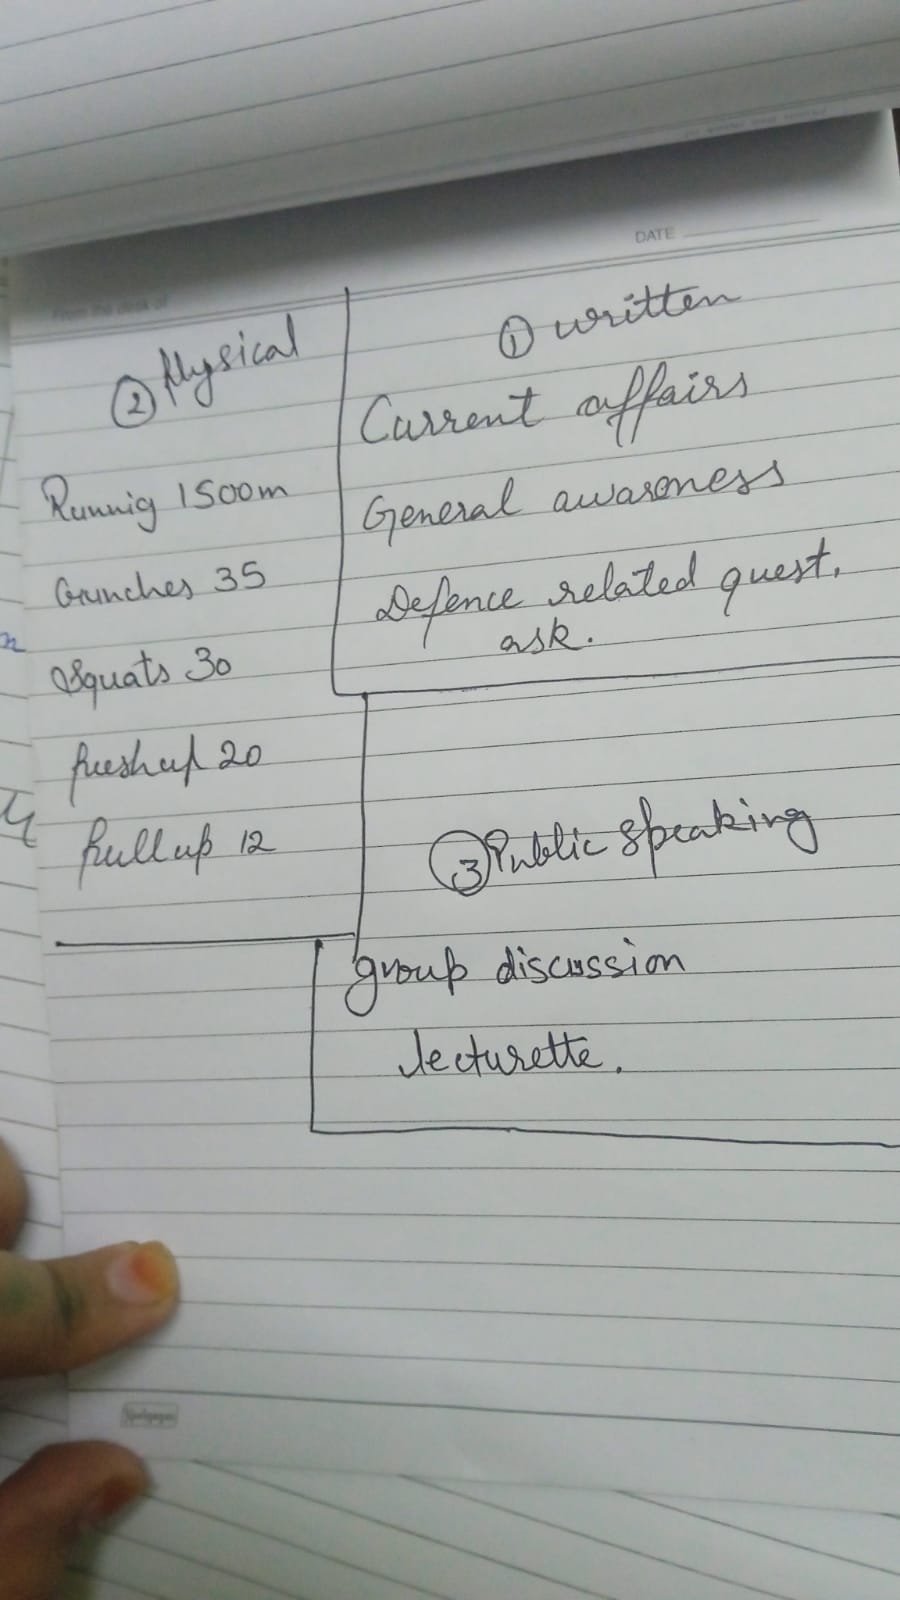 DATE
From the desk of
① written
Current affairs
General awareness
Defence related quest.
ask.
② Physical
Runnig 1500m
Crunches 35
Squats 30
Pushup 20
Pull up 12
③ Public speaking
group discussion
lecturette.